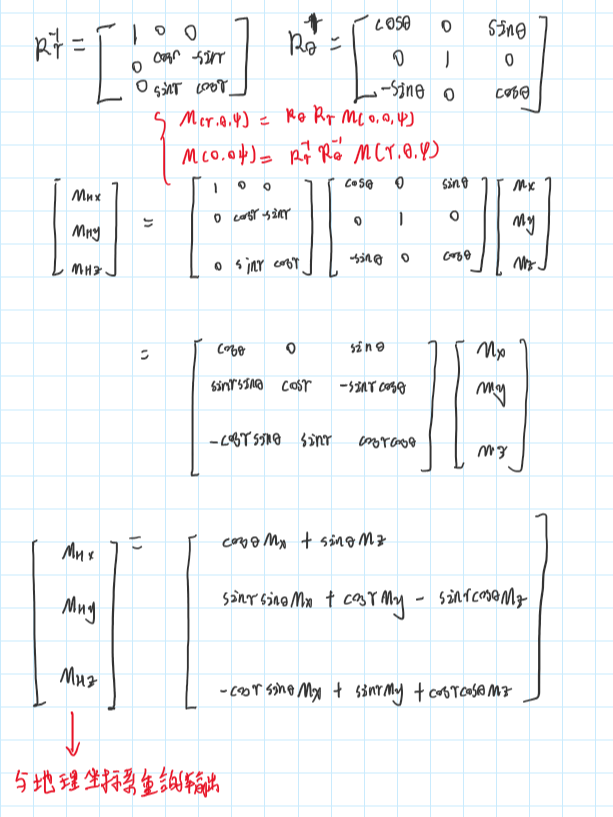 R_r^{-1} = [ 1 0 0 ; 0 cosr -sinr ; 0 sinr cosr ]   R_θ^{-1} = [ cosθ 0 sinθ ; 0 1 0 ; -sinθ 0 cosθ ]
M(r.θ.ψ) = Rθ Rr M(0.0.ψ)
M(0.0ψ) = R_r^{-1} R_θ^{-1} M(r.θ.ψ)
[ MHx ; MHy ; MHZ ] = [ 1 0 0 ; 0 cosr -sinr ; 0 sinr cosr ] [ cosθ 0 sinθ ; 0 1 0 ; -sinθ 0 cosθ ] [ Mx ; My ; Mz ]
= [ cosθ 0 sinθ ; sinrsinθ cosr -sinrcosθ ; -cosrsinθ sinr cosrcosθ ] [ Mx ; My ; Mz ]
[ MHx ; MHy ; MHz ] = [ cosθMx + sinθMz ; sinrsinθMx + cosrMy - sinrcosθMz ; -cosrsinθMx + sinrMy + cosrcosθMz ]
↓
与地理坐标系重合的输出